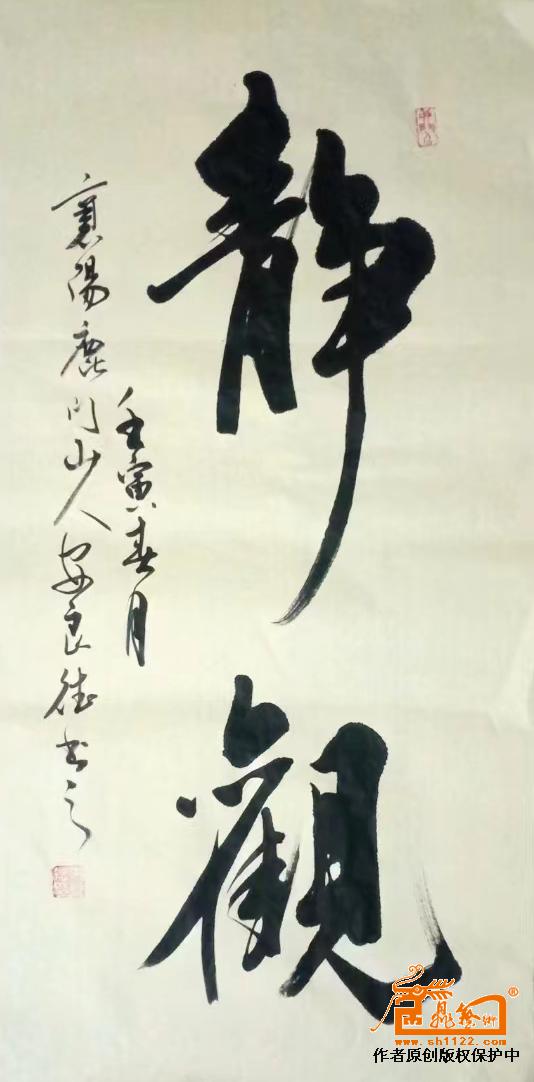 靜觀
壬寅春月
襄陽鹿门山人安良德书之
www.sh1122.com
作者原创版权保护中